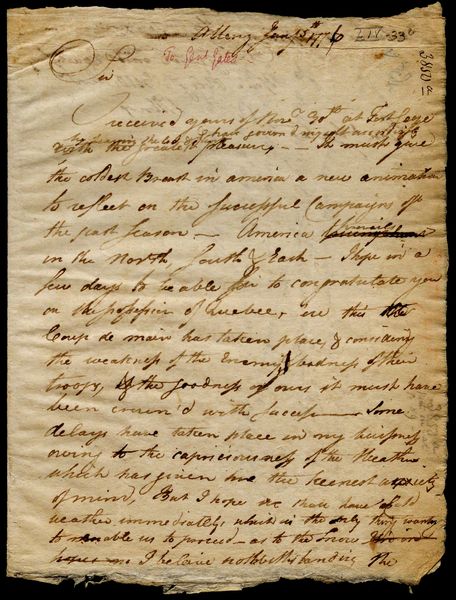 Albany Jany 5th 1776
LIV-33a
3850a
To Genl Gates
Sir
I received yours of Novr 30th at Fort George
by keeping the sled I have govern'd myself accordingly
with the greatest pleasure, — It must give
the coldest Breast in america a new animation
to reflect on the Successful Campaigns of
the past Season — America
in the North South & East — I hope in a
few days to be able for to congratulate you
on the possession of Quebec, ere this the
Coup de main has taken place, & considering
the weakness of the Enemy, badness of their
troops, & the goodness of ours it must have
been crown'd with success — Some
delays have taken place in my business
owing to the capriciousness of the Weather
which has given me the keenest anxiety
of mind, But I hope we shall have Cold
weather immediately which is the only thing wanting
to enable us to proceed — as to the snow
I beleive notwithstanding the